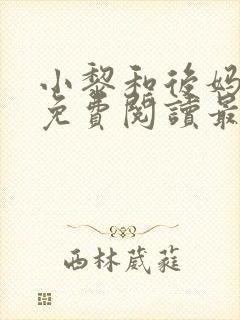 小黎和後媽
免費閱讀最
西林葳蕤